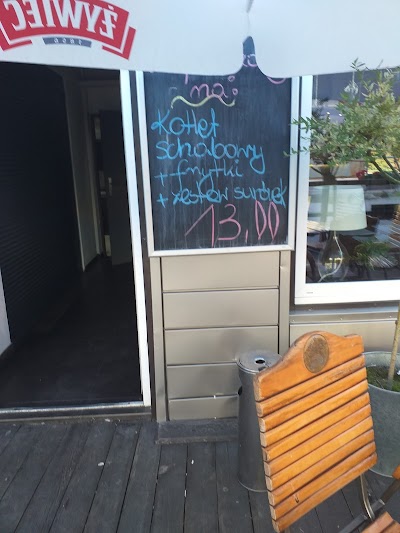 ŻYWIEC
1856
na:
Kotlet
schabowy
+ frytki
+ zestaw surówek
13,00